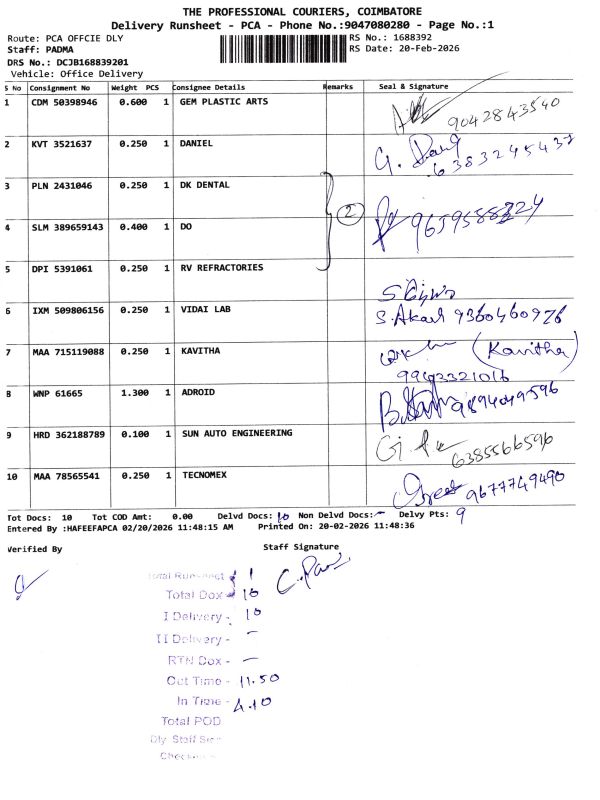 THE PROFESSIONAL COURIERS, COIMBATORE
Delivery Runsheet - PCA - Phone No.:9047080280 - Page No.:1
Route: PCA OFFCIE DLY RS No.: 1688392
Staff: PADMA RS Date: 20-Feb-2026
DRS No.: DCJB168839201
Vehicle: Office Delivery
S No Consignment No Weight PCS Consignee Details Remarks Seal & Signature
1 CDM 50398946 0.600 1 GEM PLASTIC ARTS 9042843540
2 KVT 3521637 0.250 1 DANIEL 6383245437
3 PLN 2431046 0.250 1 DK DENTAL
4 SLM 389659143 0.400 1 DO 2
5 DPI 5391061 0.250 1 RV REFRACTORIES
6 IXM 509806156 0.250 1 VIDAI LAB S.Akash 9360460976
7 MAA 715119088 0.250 1 KAVITHA (Kavitha)
9962321016
8 WNP 61665 1.300 1 ADROID 9894049596
9 HRD 362188789 0.100 1 SUN AUTO ENGINEERING 6385566596
10 MAA 78565541 0.250 1 TECNOMEX 9677749490
Tot Docs: 10 Tot COD Amt: 0.00 Delvd Docs: 10 Non Delvd Docs: - Delvy Pts: 9
Entered By :HAFEEFAPCA 02/20/2026 11:48:15 AM Printed On: 20-02-2026 11:48:36
Verified By Staff Signature
Total Runsheet 1
Total Dox - 10
I Delivery - 10
II Delivery - -
RTN Dox - -
Out Time - 11.50
In Time - 4.10
Total POD
Dly Staff Sign